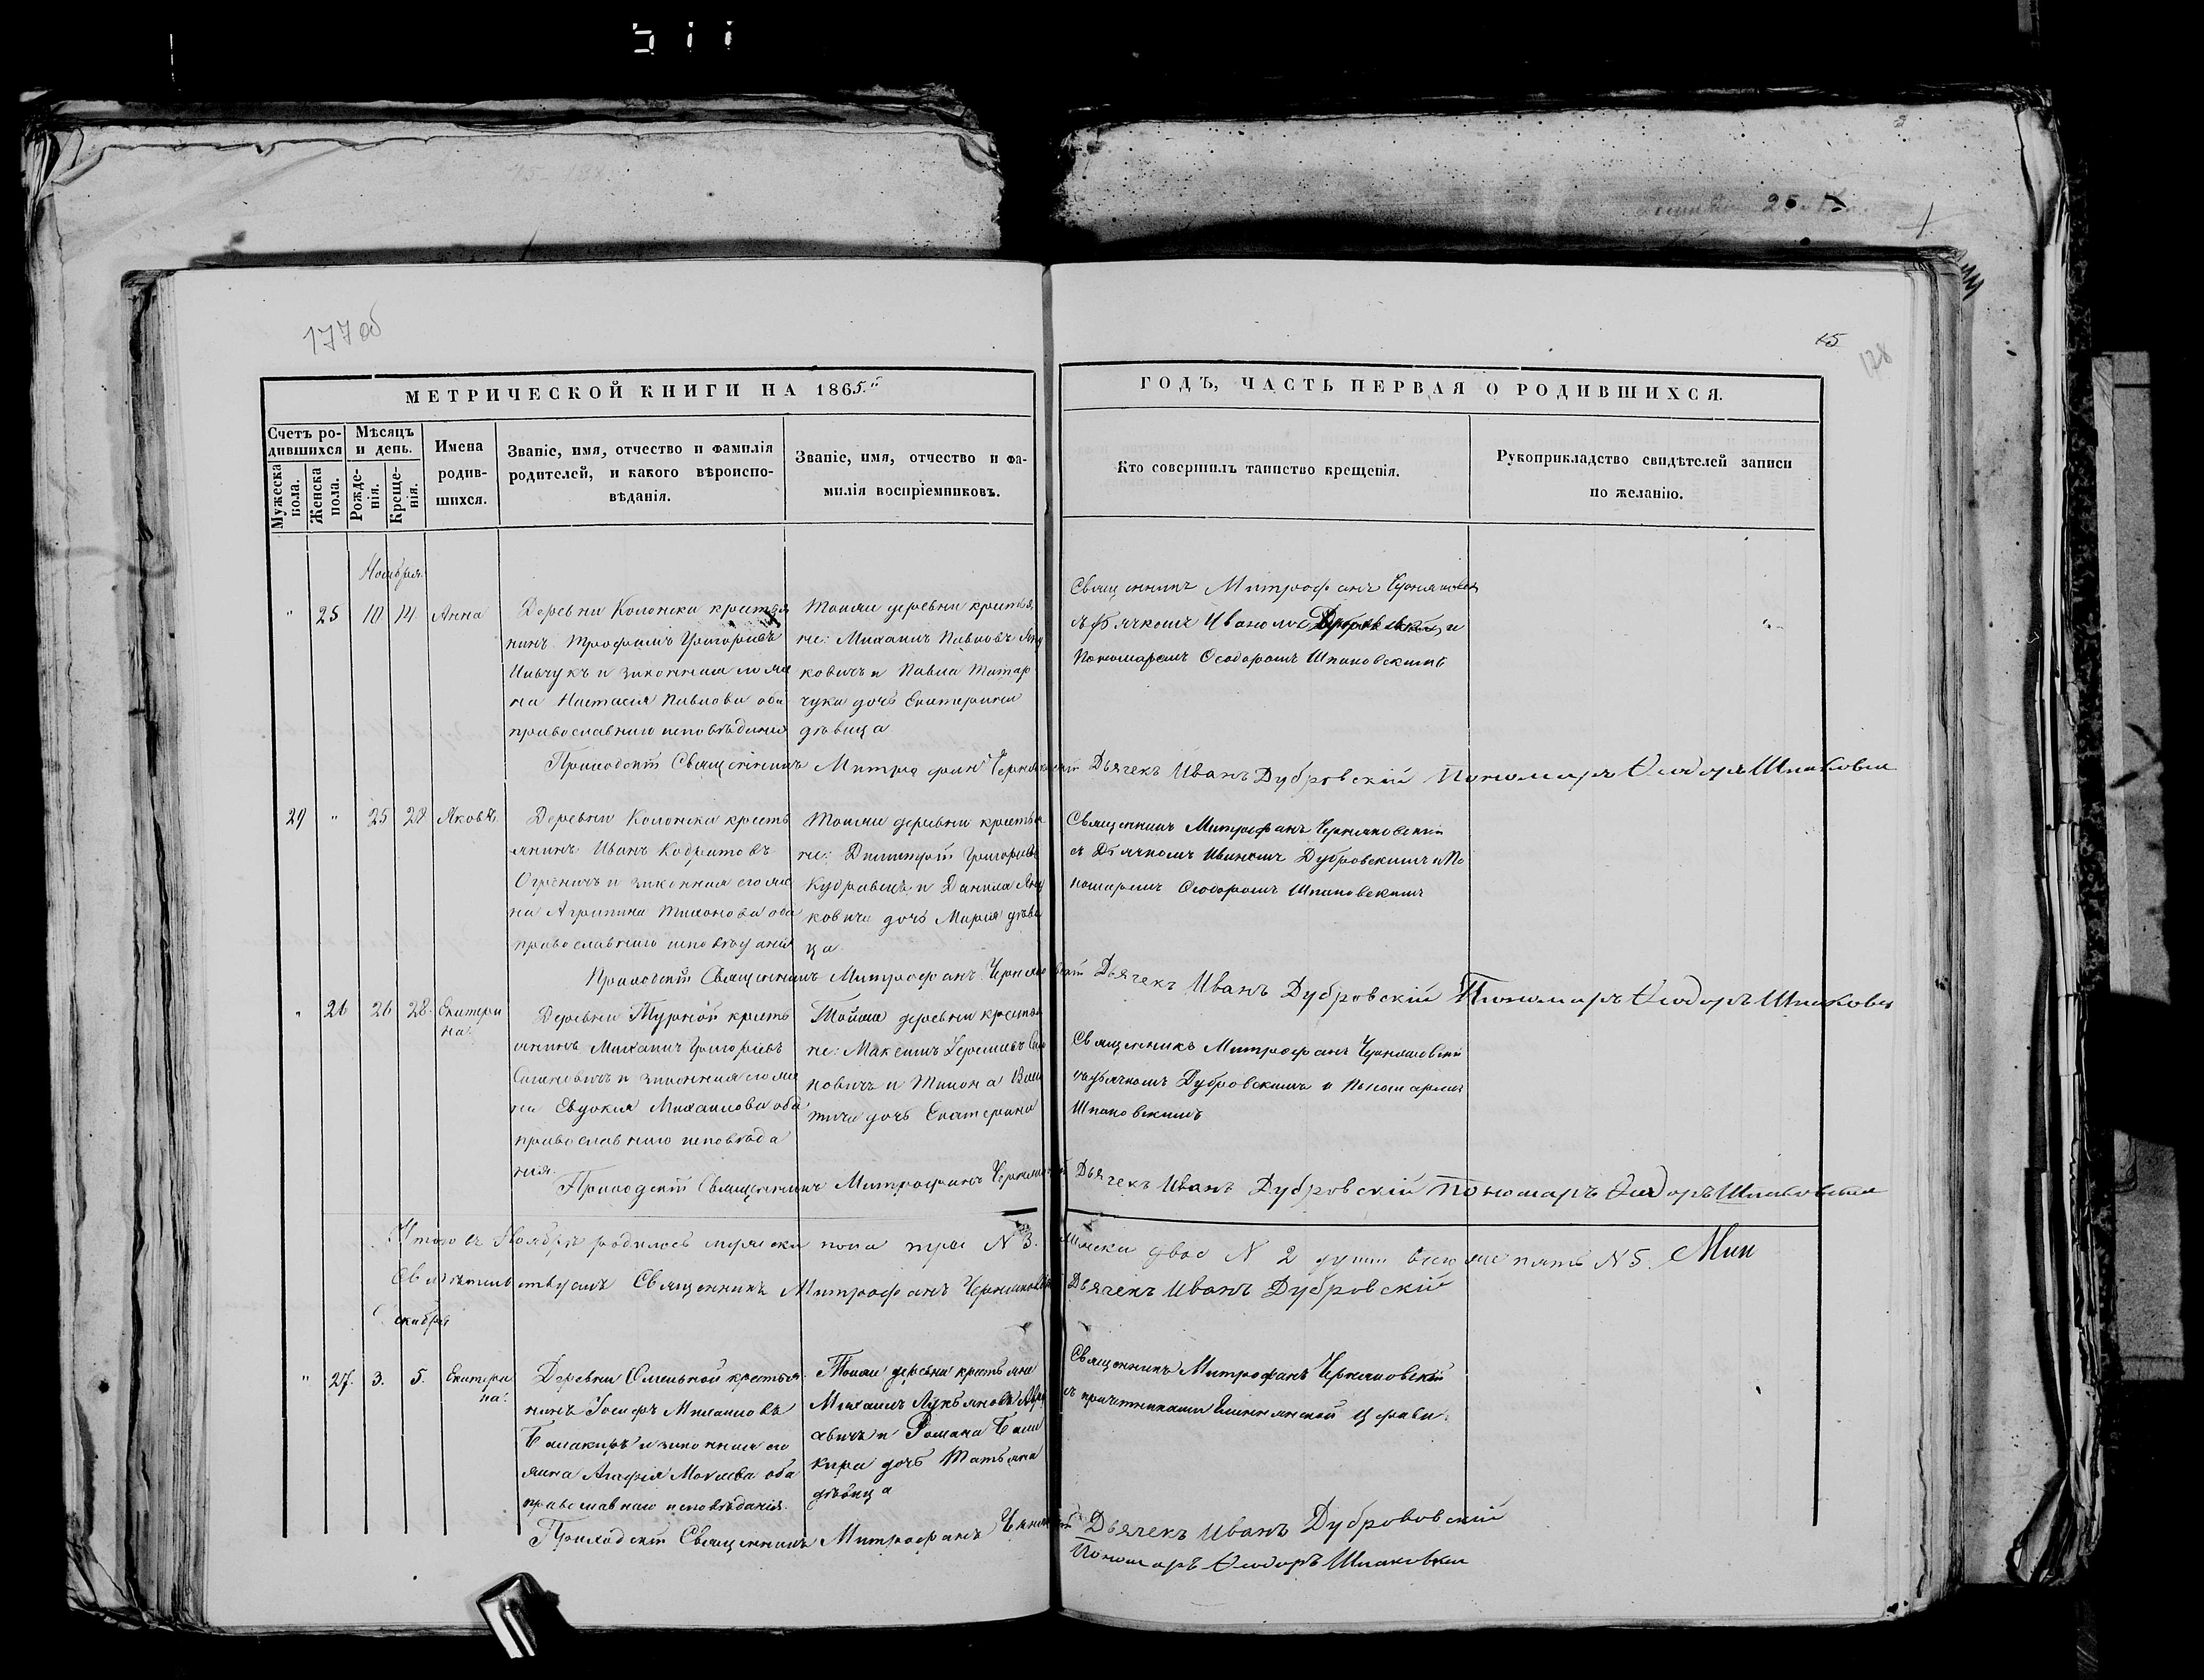 177 об
15
178
МЕТРИЧЕСКОЙ КНИГИ НА 1865.й
ГОДЪ, ЧАСТЬ ПЕРВАЯ О РОДИВШИХСЯ.
Счетъ ро-
дившихся
Мужеска
пола.
Женска
пола.
Мѣсяцъ
и день.
Рожде-
нія.
Креще-
нія.
Имена
родив-
шихся.
Званіе, имя, отчество и фамилія
родителей, и какого вѣроиспо-
вѣданія.
Званіе, имя, отчество и фа-
милія воспріемниковъ.
Кто совершилъ таинство крещенія.
Рукоприкладство свидѣтелей записи
по желанію.
Ноября
" 25 10 14 Анна
Деревни Колонска крестья
нинъ Трофимъ Григорьевъ
и законная его же
на Настасія Павлова оба
православнаго исповѣданія
Тойже деревни крестья
не: Михаилъ Павловъ Яну
ковичъ и Павла Титар
чука дочь Екатерина
дѣвица
Священникъ Митрофанъ
съ Дьячкомъ Иваномъ Дубровскимъ и
Пономаремъ Ѳеодоромъ Шпаковскимъ
Приходскій Священникъ Митрофанъ
Дьячекъ Иванъ Дубровскій Пономарь Ѳеодоръ Шпаковскій
29 " 25 28 Яковъ
Деревни Колонска кресть
янинъ Иванъ
и законная его же
на Агрипина Тихонова оба
православнаго исповѣданія
Тойже деревни крестья
не: Димитрій Григорьевъ
Кудравецъ и Данила Яну
ковича дочь Марія дѣви
ца
Священникъ Митрофанъ Черняховскій
съ Дьячкомъ Иваномъ Дубровскимъ и По
номаремъ Ѳеодоромъ Шпаковскимъ
Приходскій Священникъ Митрофанъ
Дьячекъ Иванъ Дубровскій Пономарь Ѳеодоръ Шпаковскій
" 26 26 28 Екатери
на.
Деревни Турной кресть
янинъ Михаилъ Григорьевъ
и законная его же
на Евдокія Михаилова оба
православнаго исповѣда
нія.
Тойже деревни крестья
не: Максимъ
новичъ и Тихона
тича дочь Екатерина
Священникъ Митрофанъ Черняховскій
съ дьячкомъ Дубровскимъ и Пономаремъ
Шпаковскимъ
Приходскій Священникъ Митрофанъ
Дьячекъ Иванъ Дубровскій Пономарь Ѳеодоръ Шпаковскій
Итого въ Ноябрѣ родилось мужеска пола три N 3. женска двое N 2 душъ всего же пять N 5.
Свидѣтельствуемъ Священникъ Митрофанъ Черняховскій Дьячекъ Иванъ Дубровскій
Декабря
" 27. 3. 5. Екатери
на.
Деревни крестья
нинъ Іосифъ Михаиловъ
Балакиръ и законная его
жена Агафія оба
православнаго исповѣданія.
Тойже деревни крестьяне
Михаилъ Лукьяновъ
и Романа Бала
кира дочь Татьяна
дѣвица
Священникъ Митрофанъ Черняховскій
съ причетниками церкви.
Приходскій Священникъ Митрофанъ
Дьячекъ Иванъ Дубровскій
Пономарь Ѳеодоръ Шпаковскій